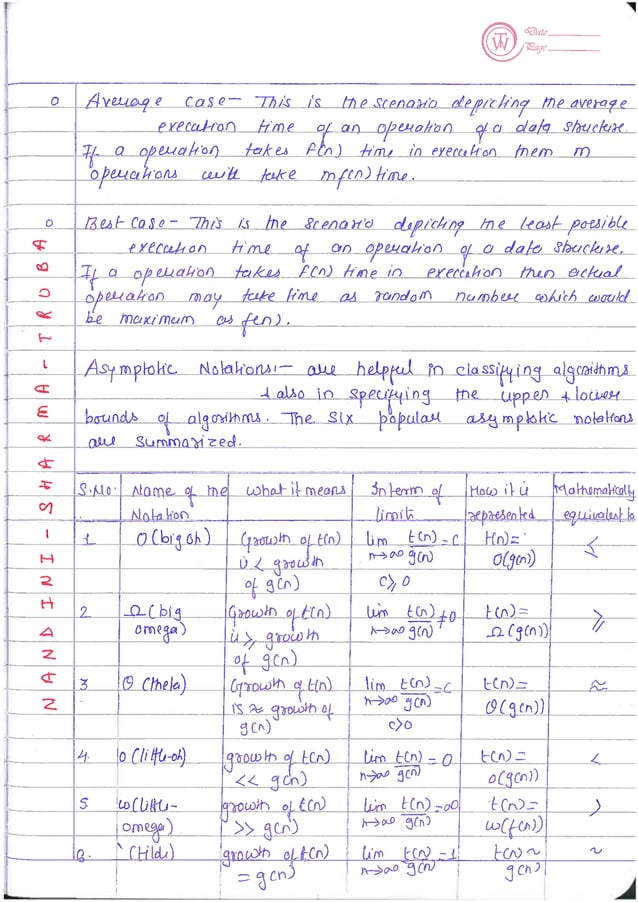 TW
Date
Page
o Average case - This is the scenario depicting the average
execution time of an operation of a data structure.
If a operation takes f(n) time in execution them m
operations will take mf(n) time.
o Best case - This is the scenario depicting the least possible
execution time of an operation of a data structure.
If a operation takes f(n) time in execution then actual
operation may take time as random number which would
be maximum as f(n).
Asymptotic Notations:- are helpful in classifying algorithms
+ also in specifying the upper + lower
bounds of algorithms. The six popular asymptotic notations
are summarized.
S.No. Name of the Notation What it means In term of limits How it is represented Mathematically equivalent to
1 O(big oh) Growth of t(n) is < growth of g(n) lim n→∞ t(n)/g(n) = c c≥0 t(n)= O(g(n)) ≤
2 Ω(big omega) Growth of t(n) is ≥ growth of g(n) lim n→∞ t(n)/g(n) ≠0 t(n)= Ω(g(n)) ≥
3 Θ(theta) Growth of t(n) is ≈ growth of g(n) lim n→∞ t(n)/g(n) = c c>0 t(n)= Θ(g(n)) ≈
4. o(little-oh) growth of t(n) << g(n) lim n→∞ t(n)/g(n) = 0 t(n)= o(g(n)) <
5. ω(little-omega) growth of t(n) >> g(n) lim n→∞ t(n)/g(n) =∞ t(n)= ω(f(n)) >
6. `(tilde) growth of t(n) = g(n) lim n→∞ t(n)/g(n) =1 t(n) ~ g(n) ~
NANDHINI-SHARMA-TRUBA